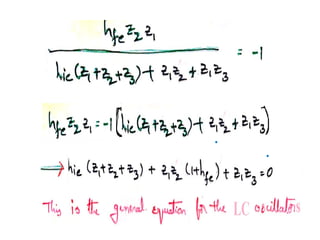 hfe z2 z1
hie(z1+z2+z3)+ z1z2 + z1z3 = -1
hfe z2 z1 = -1[hie(z1+z2+z3)+ z1z2 + z1z3]
⟹ hie (z1+z2+z3) + z1z2 (1+hfe) + z1z3 = 0
This is the general equation for the LC oscillators